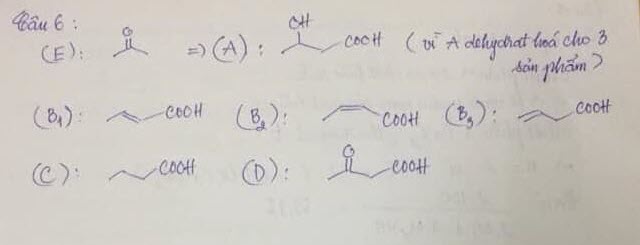 Câu 6 :
(E) : O => (A) : OH COOH ( vì A dehydrat hoá cho 3
sản phẩm )
(B1) : COOH (B2) : COOH (B3) : COOH
(C) : COOH (D) : O COOH